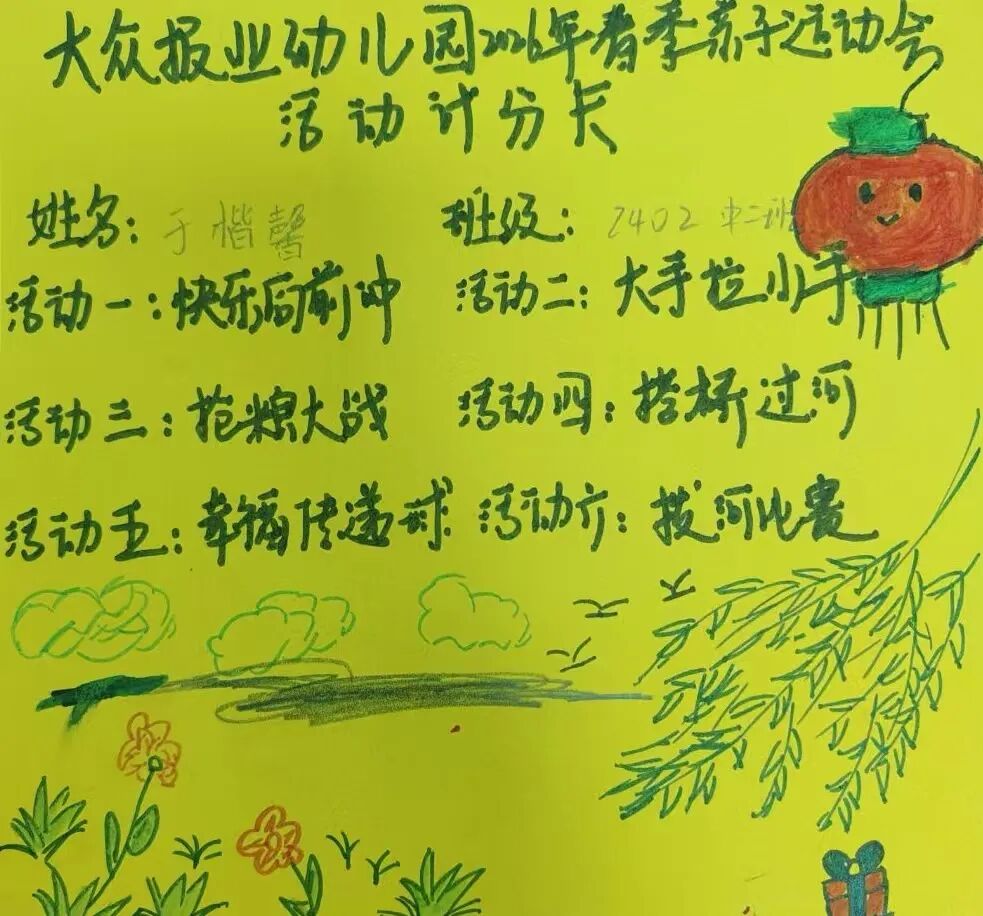 大众报业幼儿园2026年春季亲子运动会
活动计分卡
姓名：于楷馨 班级：2402 中二班
活动一：快乐向前冲 活动二：大手拉小手
活动三：抢粮大战 活动四：搭桥过河
活动五：幸福传递球 活动六：拔河比赛